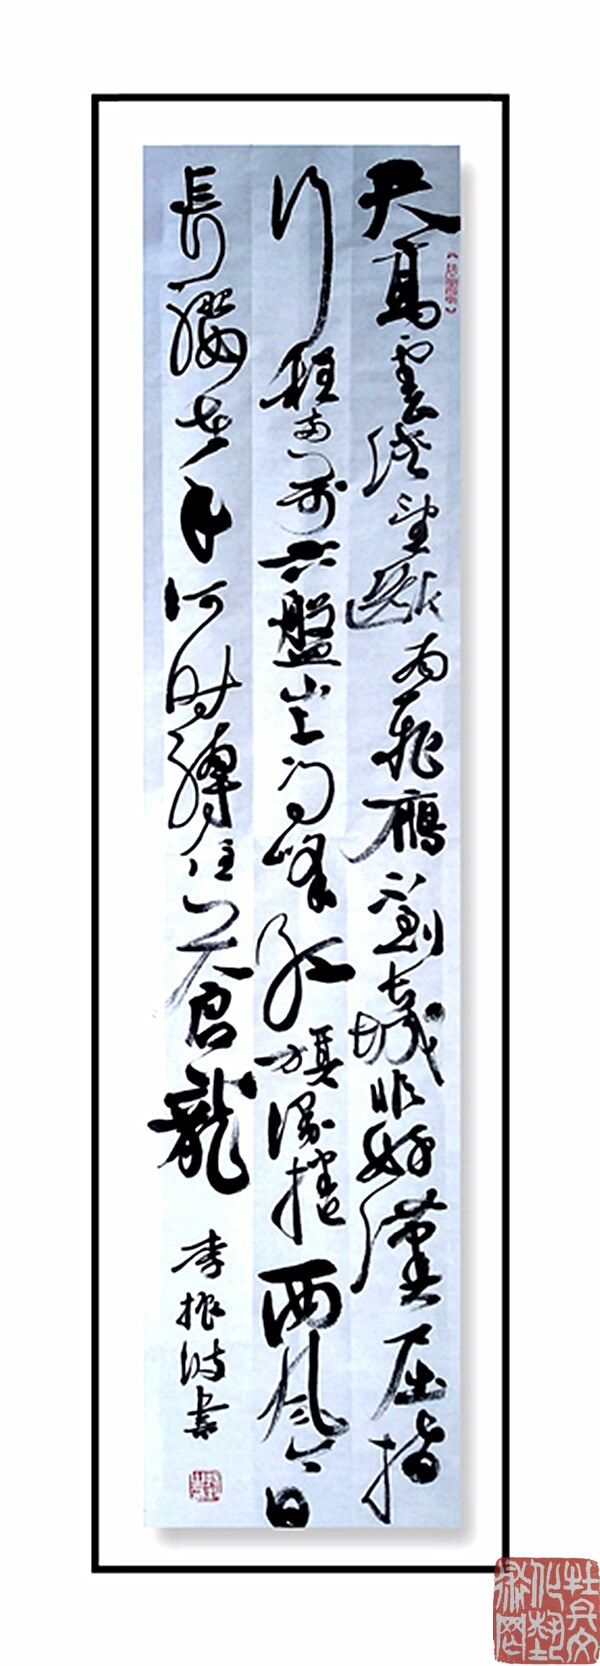 天高雲淡望斷南飛鴈不到長城非好漢屈指
行程万六盤山上高峰紅旗漫捲西風今日
長纓在手何时縛住蒼龍
李振波書